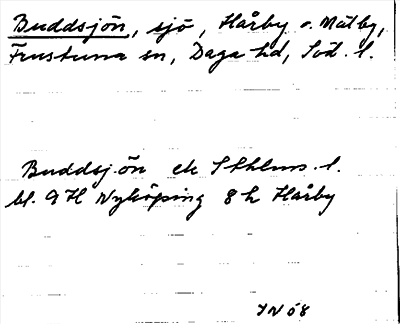 Buddsjön, sjö, Hårby o. Mälby,
Frustuna sn, Daga hd, Söd. l.
Buddsjön ek Sthlms. l.
bl. 9H Nyköping 8h Hårby